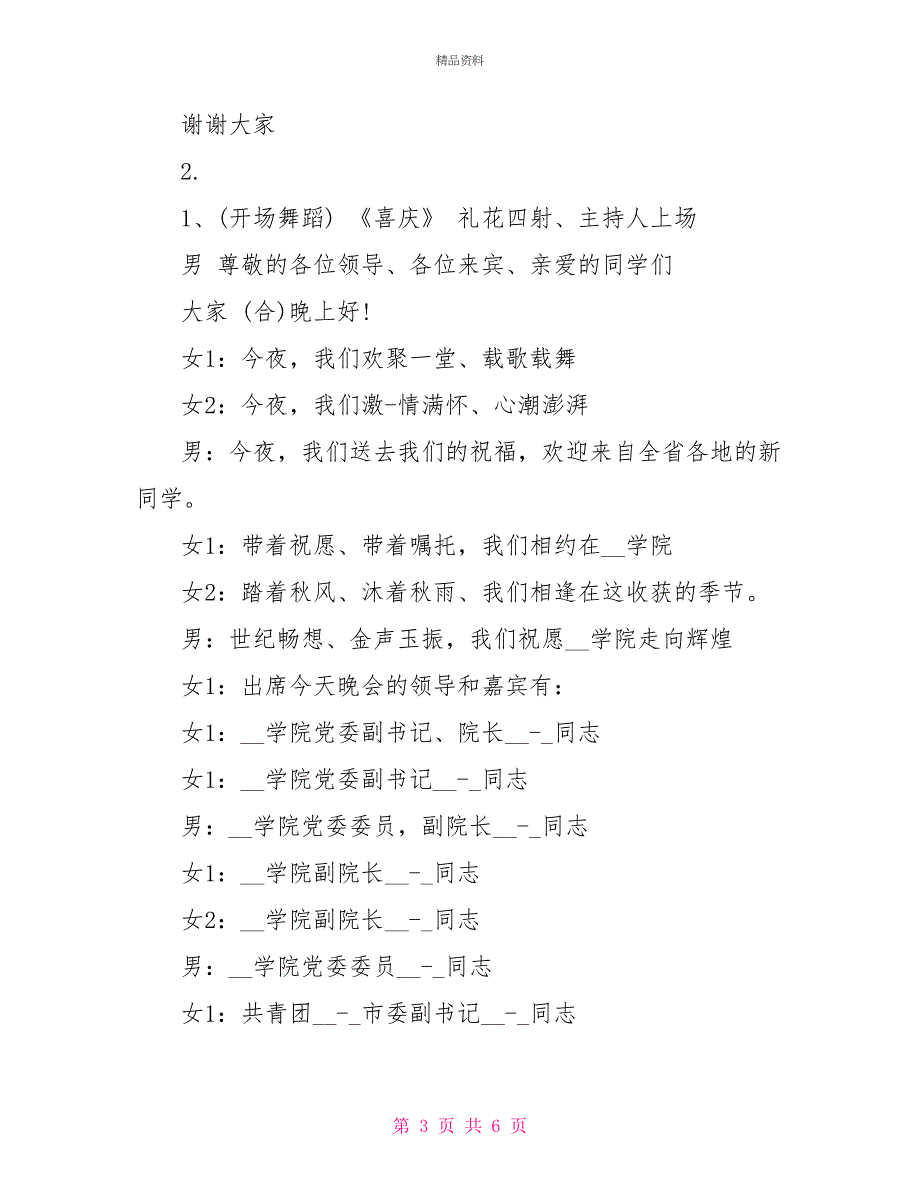 精品资料
谢谢大家
2.
1、(开场舞蹈) 《喜庆》 礼花四射、主持人上场
男 尊敬的各位领导、各位来宾、亲爱的同学们
大家 (合)晚上好!
女1：今夜，我们欢聚一堂、载歌载舞
女2：今夜，我们激-情满怀、心潮澎湃
男：今夜，我们送去我们的祝福，欢迎来自全省各地的新
同学。
女1：带着祝愿、带着嘱托，我们相约在__学院
女2：踏着秋风、沐着秋雨、我们相逢在这收获的季节。
男：世纪畅想、金声玉振，我们祝愿__学院走向辉煌
女1：出席今天晚会的领导和嘉宾有：
女1：__学院党委副书记、院长__-_同志
女1：__学院党委副书记__-_同志
男：__学院党委委员，副院长__-_同志
女1：__学院副院长__-_同志
女2：__学院副院长__-_同志
男：__学院党委委员__-_同志
女1：共青团__-_市委副书记__-_同志
第 3 页 共 6 页